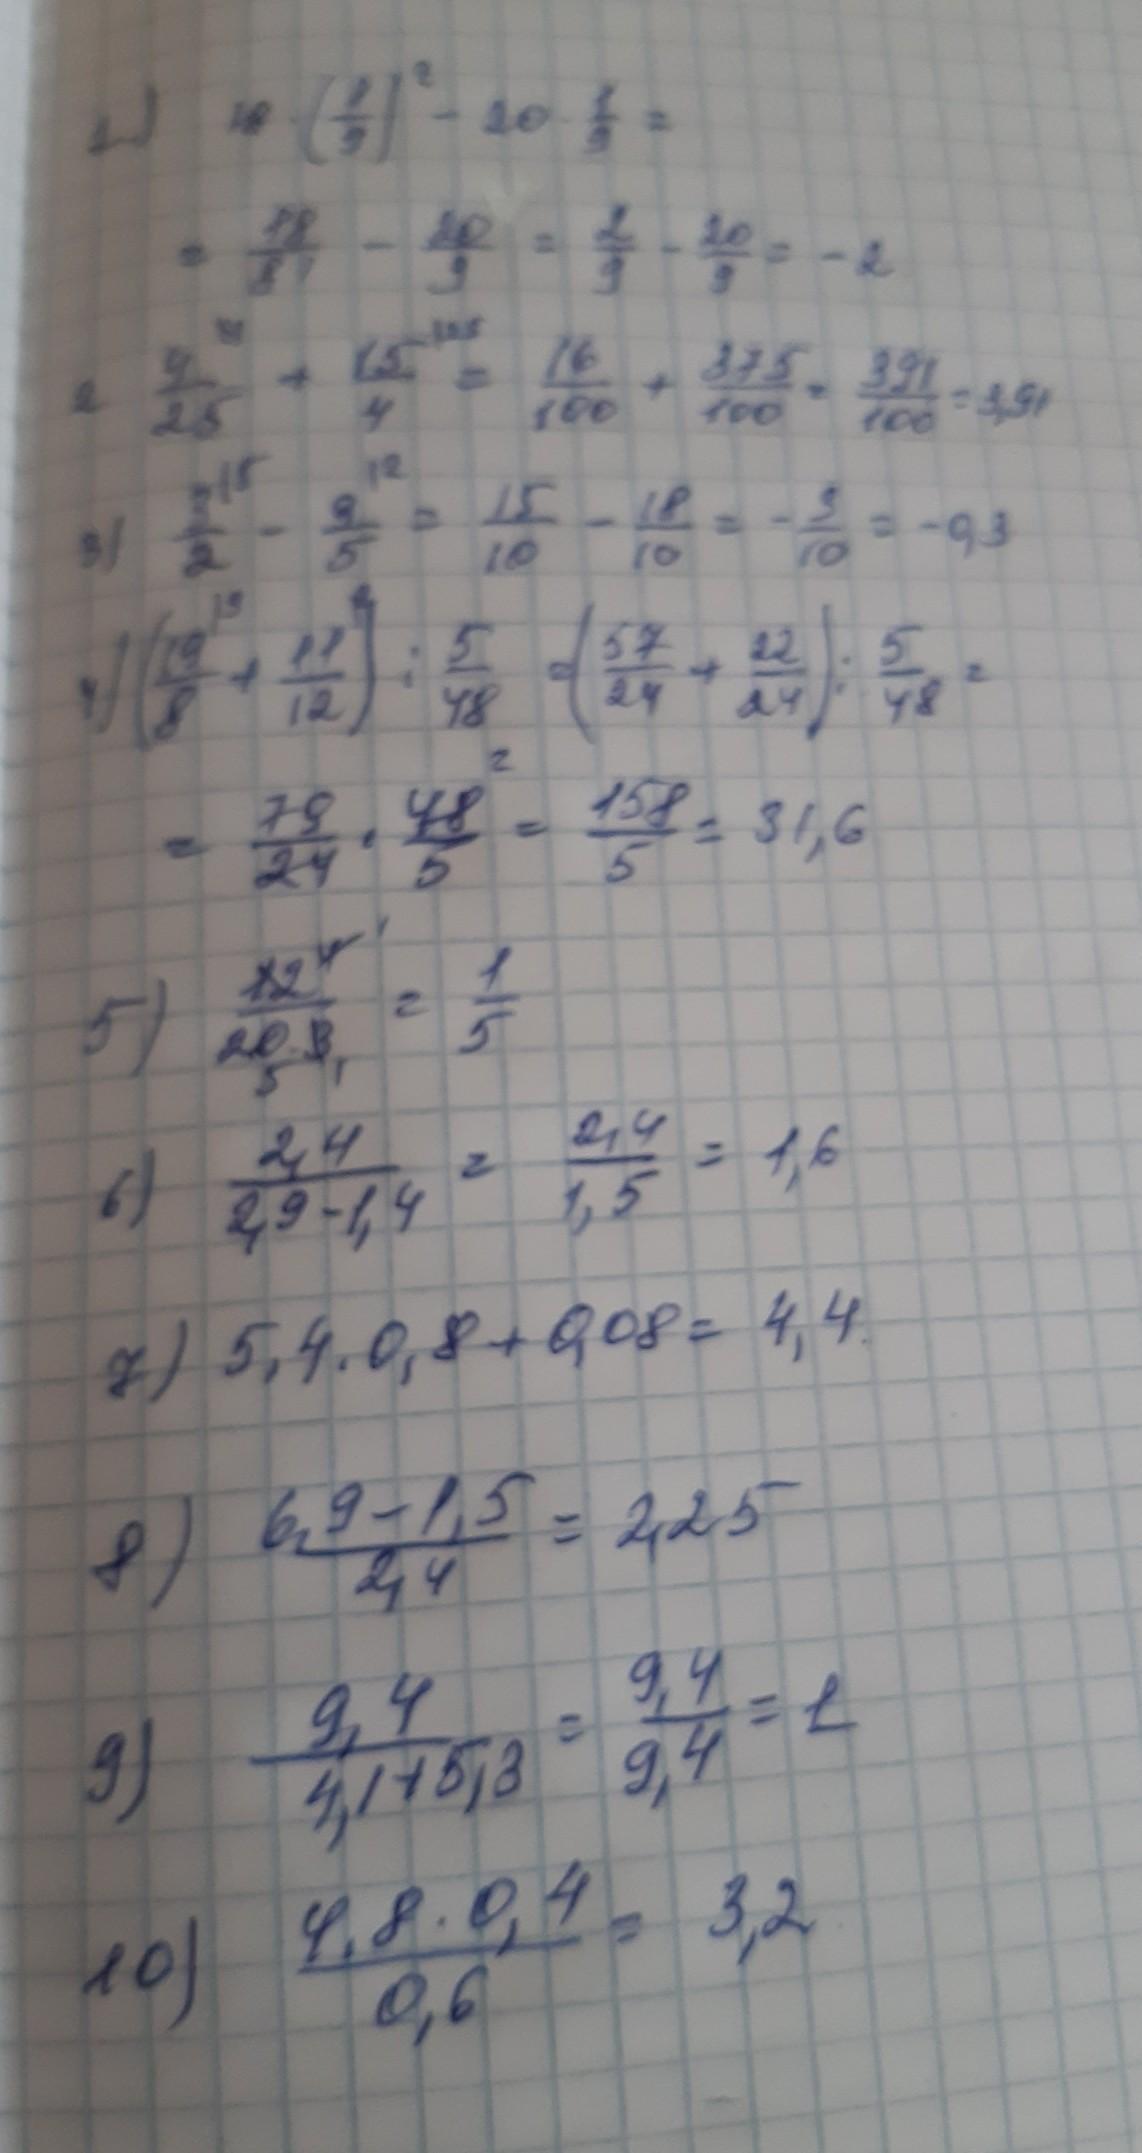 1) 18 · (1/9)² - 20 · 1/9 =
= 18/81 - 20/9 = 2/9 - 20/9 = -2
2 4/25 + 15/4 = 16/100 + 375/100 = 391/100 = 3,91
3) 3/2 - 9/5 = 15/10 - 18/10 = -3/10 = -0,3
4) (19/8 + 11/12) : 5/48 = (57/24 + 22/24) : 5/48 =
= 79/24 · 48/5 = 158/5 = 31,6
5) 12/20·3 = 1/5
6) 2,4/2,9-1,4 = 2,4/1,5 = 1,6
7) 5,4 · 0,8 + 0,08 = 4,4
8) 6,9-1,5/2,4 = 2,25
9) 9,4/4,1+5,3 = 9,4/9,4 = 1
10) 4,8 · 0,4/0,6 = 3,2